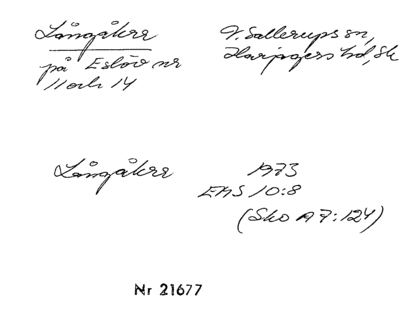 Långåkrr
på Eslöv nr
11 och 14
V. Sallerups sn,
Harjagers hd, Sk
Långåkrr
1973
EAS 10:8
(Sko A 7:124)
Nr 21677